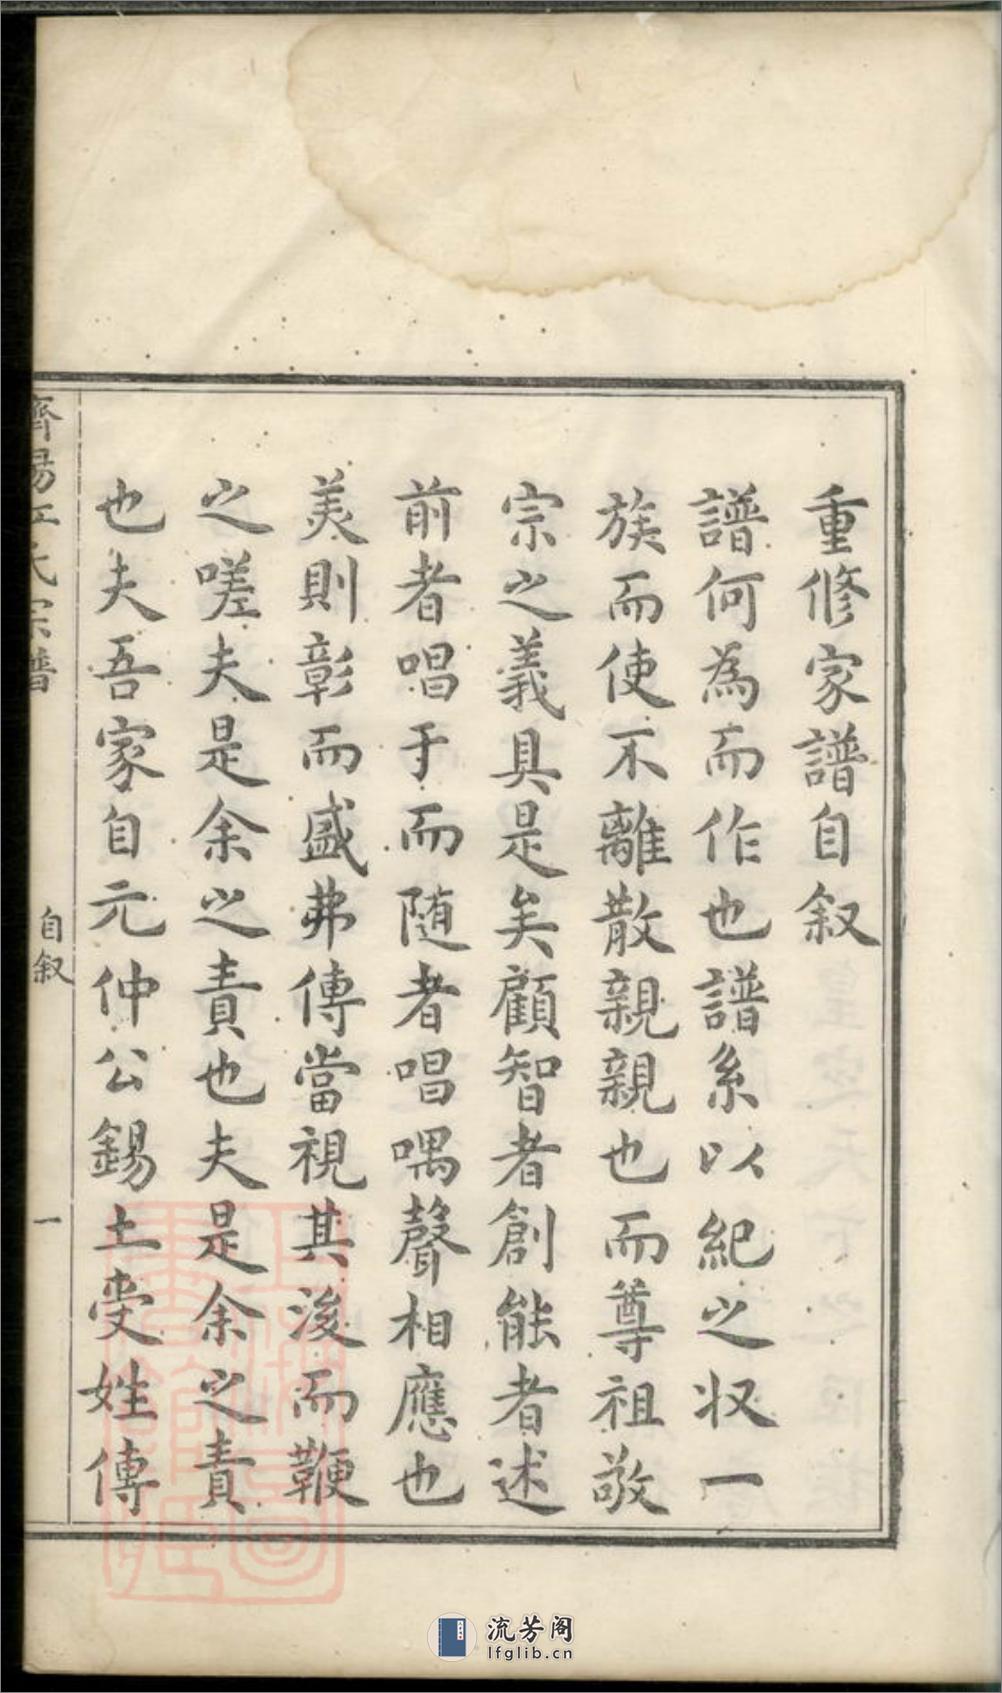 重修家譜自叙
譜何為而作也譜系以紀之収一
族而使不離散親親也而尊祖敬
宗之義具是矣顧智者創能者述
前者唱于而随者唱喁聲相應也
美則彰而盛弗傳當視其後而鞭
之嗟夫是余之責也夫是余之責
也夫吾家自元仲公錫土受姓傳
濟陽江氏宗譜
自叙
一
流芳阁
lfglib.cn